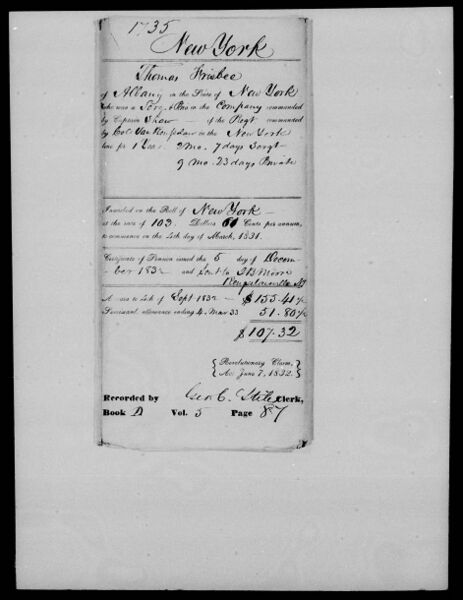 1735
New York
Thomas Frisbee
of Albany in the State of New York
who was a Serg. & Pri in the Company commanded
by Captain Shaw – of the Regt. commanded
by Col. Van Rensselaer in the New York
line for 1 Year 2 mo. 7 days Sergt –
9 mo. 23 days Private
Inscribed on the Roll of New York –
at the rate of 103 Dollars 61 Cents per annum,
to commence on the 4th day of March, 1831.
Certificate of Pension issued the 5 day of Decem
ber 1832 and Sent to
Rensselaerville NY
Arrears to 4th of Sept 1832 – $155.41
Semi-anl. allowance ending 4 Mar 33 51.80
$ 107.32
Revolutionary Claim,
Act June 7, 1832.
Recorded by Geo C. Clerk,
Book D Vol. 5 Page 87